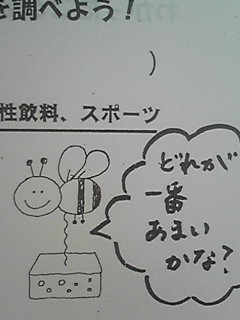 を調べよう！
）
性飲料、スポーツ
どれが
一番
あまい
かな？